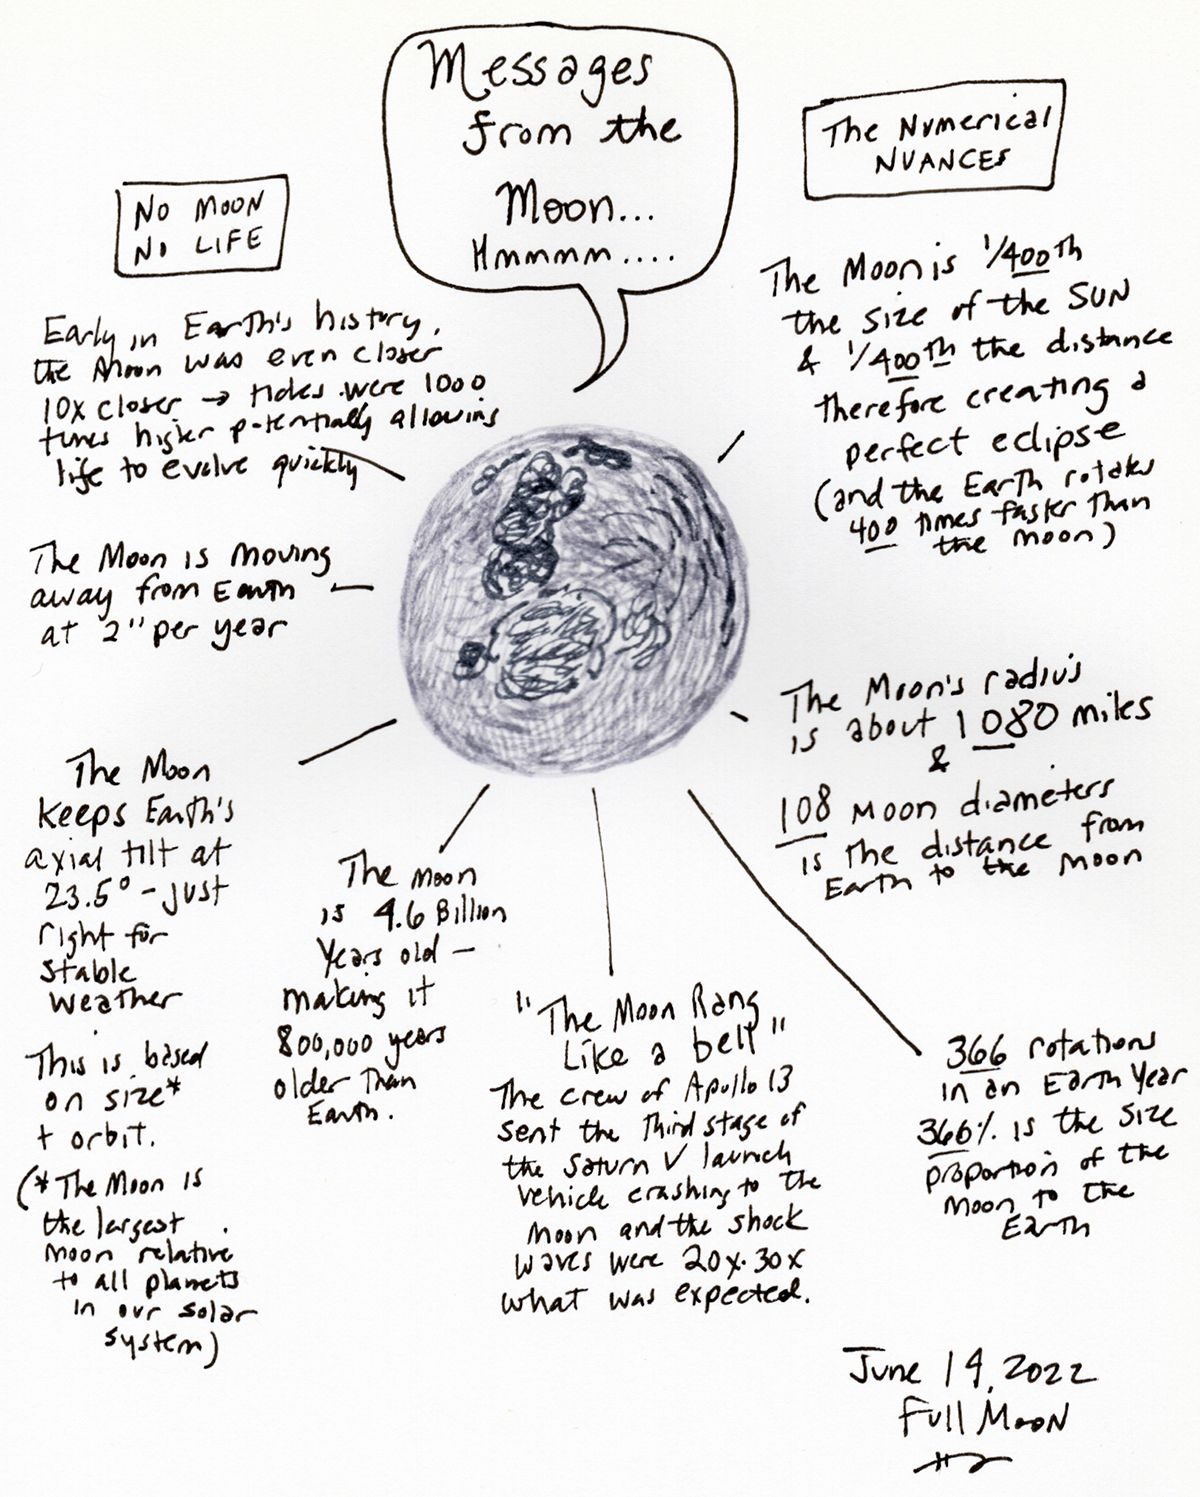 Messages
from the
Moon...
Hmmmm....
NO MOON
NO LIFE
Early in Earth's history,
the Moon was even closer
10x closer → tides were 1000
times higher potentially allowing
life to evolve quickly
The Moon is moving
away from Earth
at 2" per year
The Moon
keeps Earth's
axial tilt at
23.5° - just
right for
stable
weather
This is based
on size*
+ orbit.
(* The Moon is
the largest
moon relative
to all planets
in our solar
system)
The moon
is 4.6 Billion
years old —
making it
800,000 years
older than
Earth.
"The Moon Rang
Like a bell"
The crew of Apollo 13
sent the third stage of
the Saturn V launch
vehicle crashing to the
moon and the shock
waves were 20x-30x
what was expected.
The Numerical
NUANCES
The Moon is 1/400th
the size of the SUN
& 1/400th the distance
therefore creating a
perfect eclipse
(and the Earth rotates
400 times faster than
the moon)
The Moon's radius
is about 1080 miles
&
108 Moon diameters
is the distance from
Earth to the Moon
366 rotations
in an Earth Year
366% is the size
proportion of the
Moon to the
Earth
June 14, 2022
Full Moon